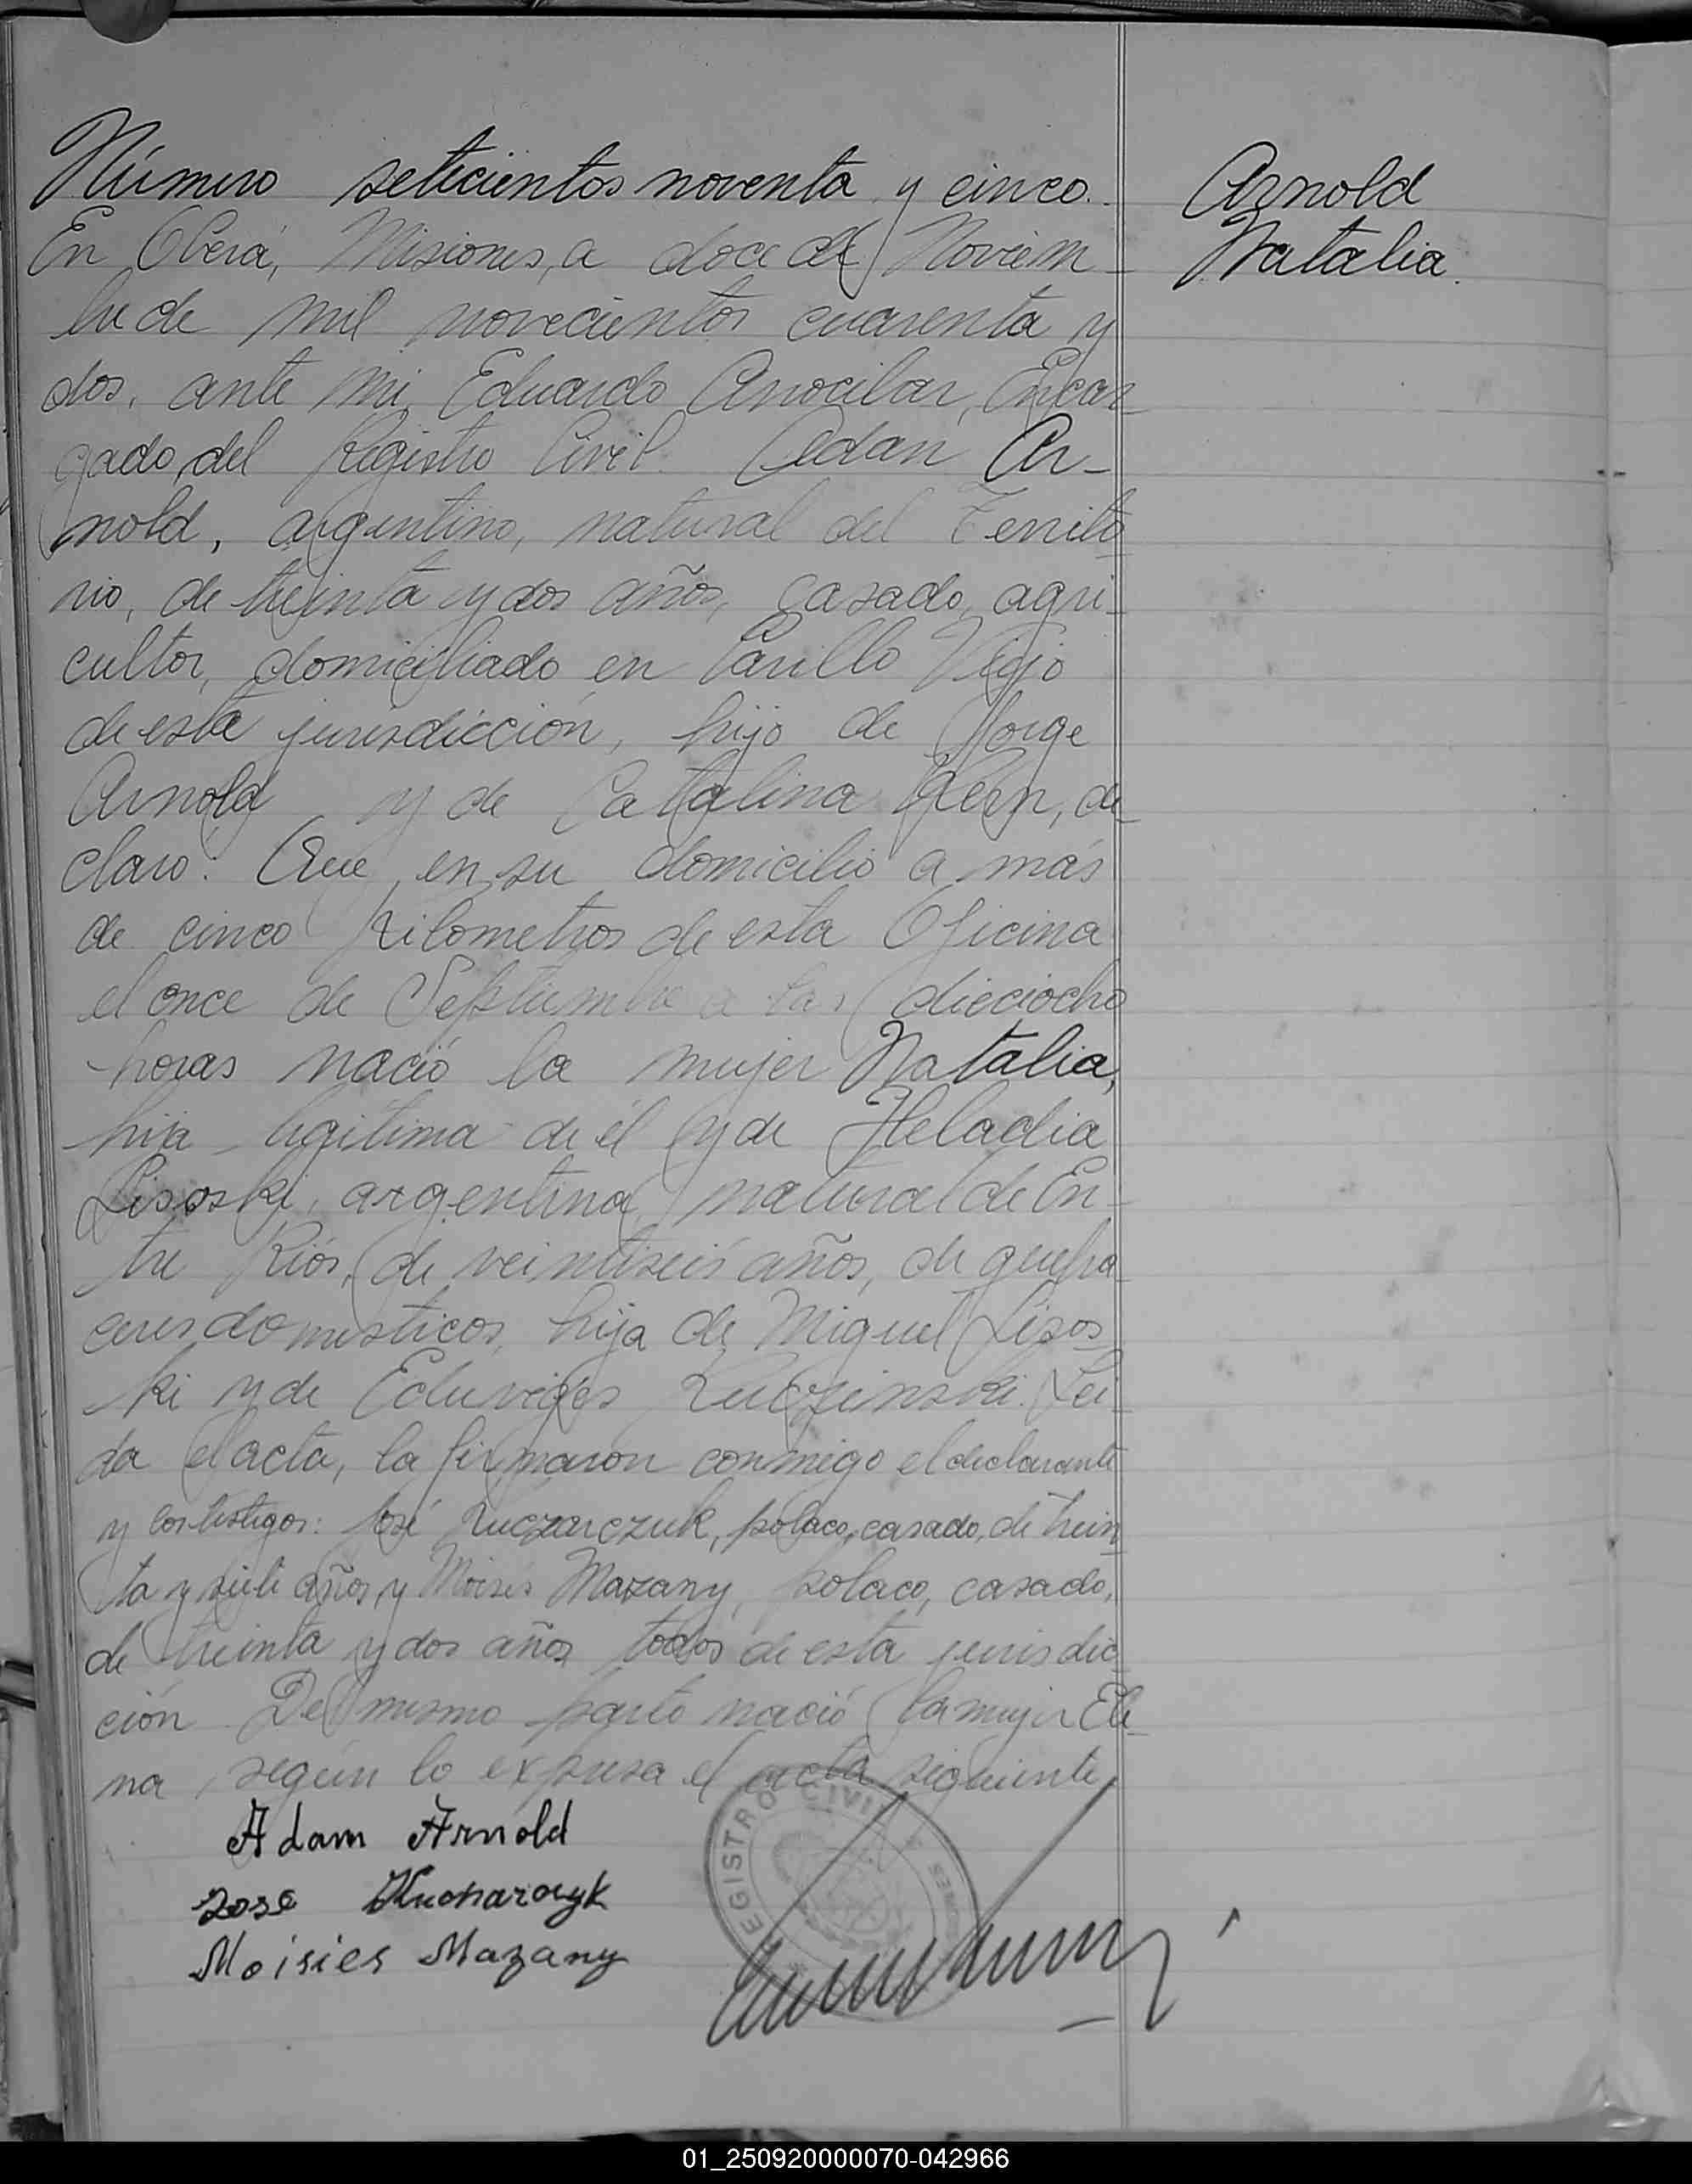 Número setecientos noventa y cinco.
Arnold
Natalia.
En Oberá, Misiones, a doce de Noviem-
bre de mil novecientos cuarenta y
dos, ante mi, Eduardo Encar-
gado del Registro Civil. Adan Ar-
nold, argentino, natural del Territo
rio, de treinta y dos años, casado, agri-
cultor, domiciliado en Viejo
de esta jurisdicción, hijo de Jorge
Arnold y de Catalina de-
claro: Que en su domicilio a más
de cinco kilometros de esta Oficina
el once de Septiembre a las dieciocho
horas nació la mujer Natalia,
hija legitima de él y de Heladia
Lisoski, argentina, natural de En-
tre Ríos, de veintiseis años, de queha-
ceres domesticos, hija de Miguel Lisos-
ki y de Eduviges Luczinski. Lei-
da el acta, la firmaron conmigo el declarante
y los testigos: José Kuczarczuk, polaco, casado, de trein
ta y siete años, y Moises Mazany, polaco, casado,
de treinta y dos años, todos de esta jurisdic-
ción. Del mismo parto nació la mujer Ele-
na, segun lo expresa el acta siguiente
Adam Arnold
Jose Kucharczyk
Moisies Mazany
REGISTRO CIVIL
01_250920000070-042966